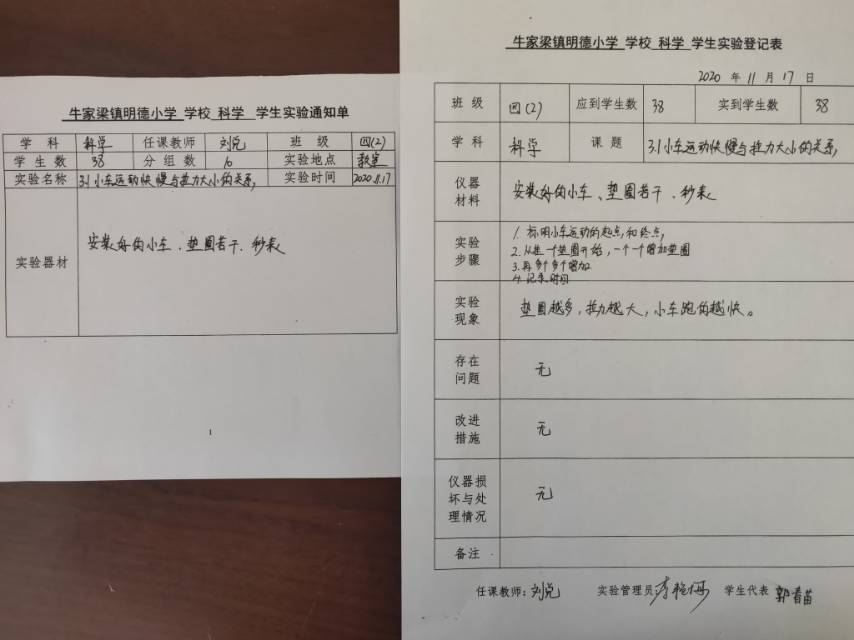 牛家梁镇明德小学 学校 科学 学生实验通知单
学科 科学 任课教师 刘悦 班级 四(2)
学生数 38 分组数 10 实验地点 教室
实验名称 3.1小车运动快慢与拉力大小的关系, 实验时间 2020.11.17
实验器材 安装好的小车、垫圈若干、秒表
1
牛家梁镇明德小学 学校 科学 学生实验登记表
2020 年 11 月 17 日
班级 四(2) 应到学生数 38 实到学生数 38
学科 科学 课题 3.1小车运动快慢与拉力大小的关系,
仪器材料 安装好的小车、垫圈若干、秒表
实验步骤
1. 标明小车运动的起点,和终点,
2. 从一个垫圈开始,一个一个增加垫圈
3. 再多个多个增加
4. 记录时间
实验现象 垫圈越多,拉力越大,小车跑的越快。
存在问题 无
改进措施 无
仪器损坏与处理情况 无
备注
任课教师:刘悦 实验管理员: 学生代表 郭春苗